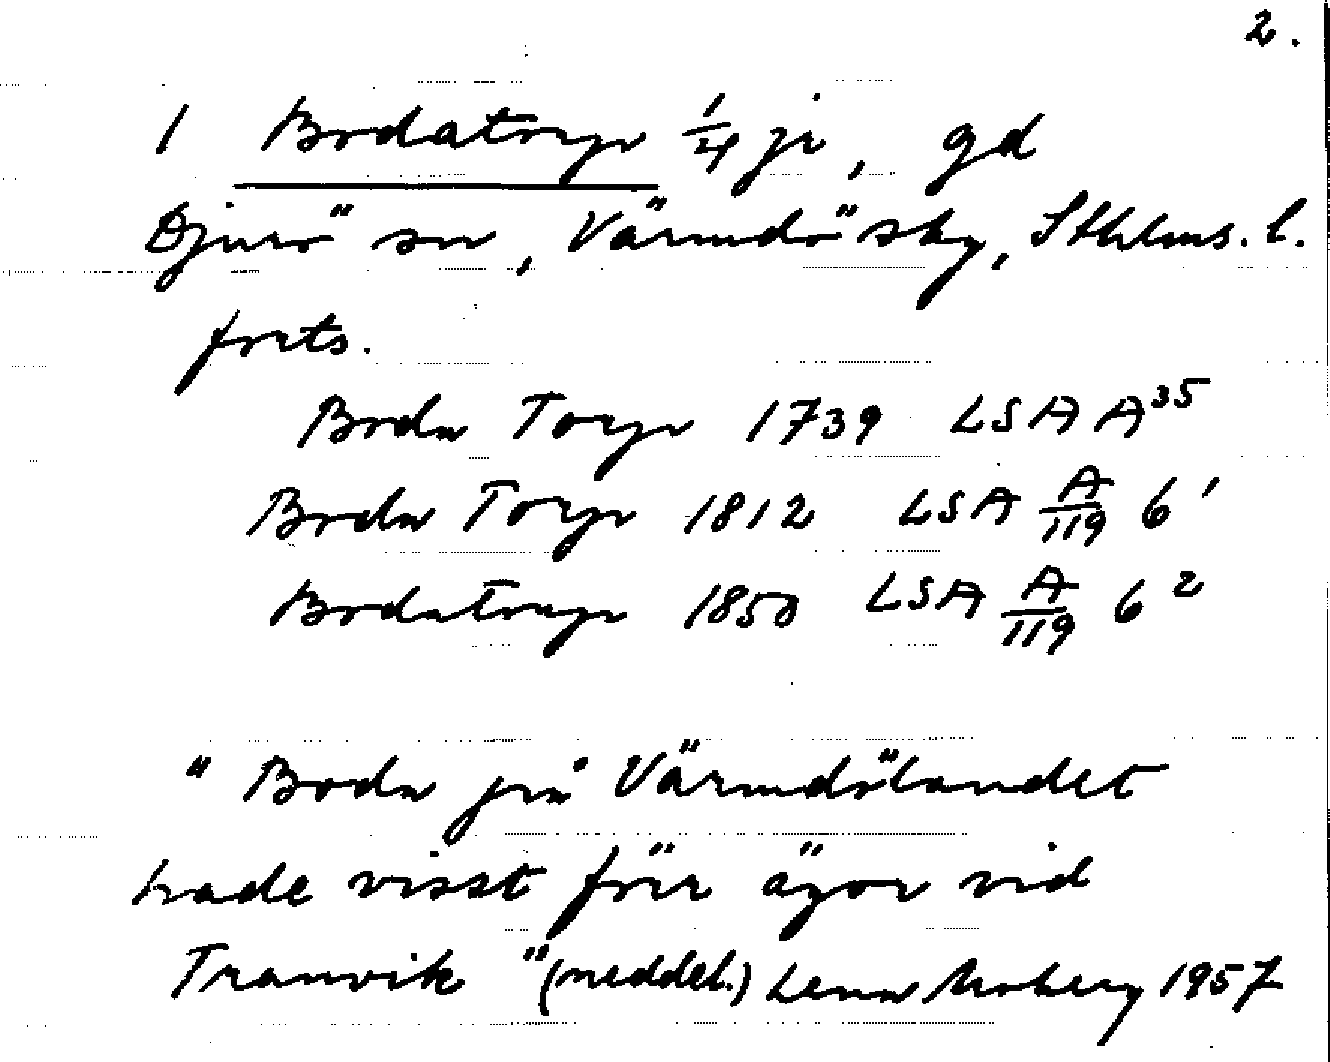 2.
1 Bodatorp 1/4 js, gd
Djurö sn, Värmdö skg, Sthlms. l.
forts.
Boda Torp 1739 LSA A 35
Boda Torp 1812 LSA A/119 6¹
Bodatorp 1850 LSA A/119 6²
"Boda på Värmdölandet
hade visst förr ägor vid
Tranvik" (meddel.) Lena Moberg 1957